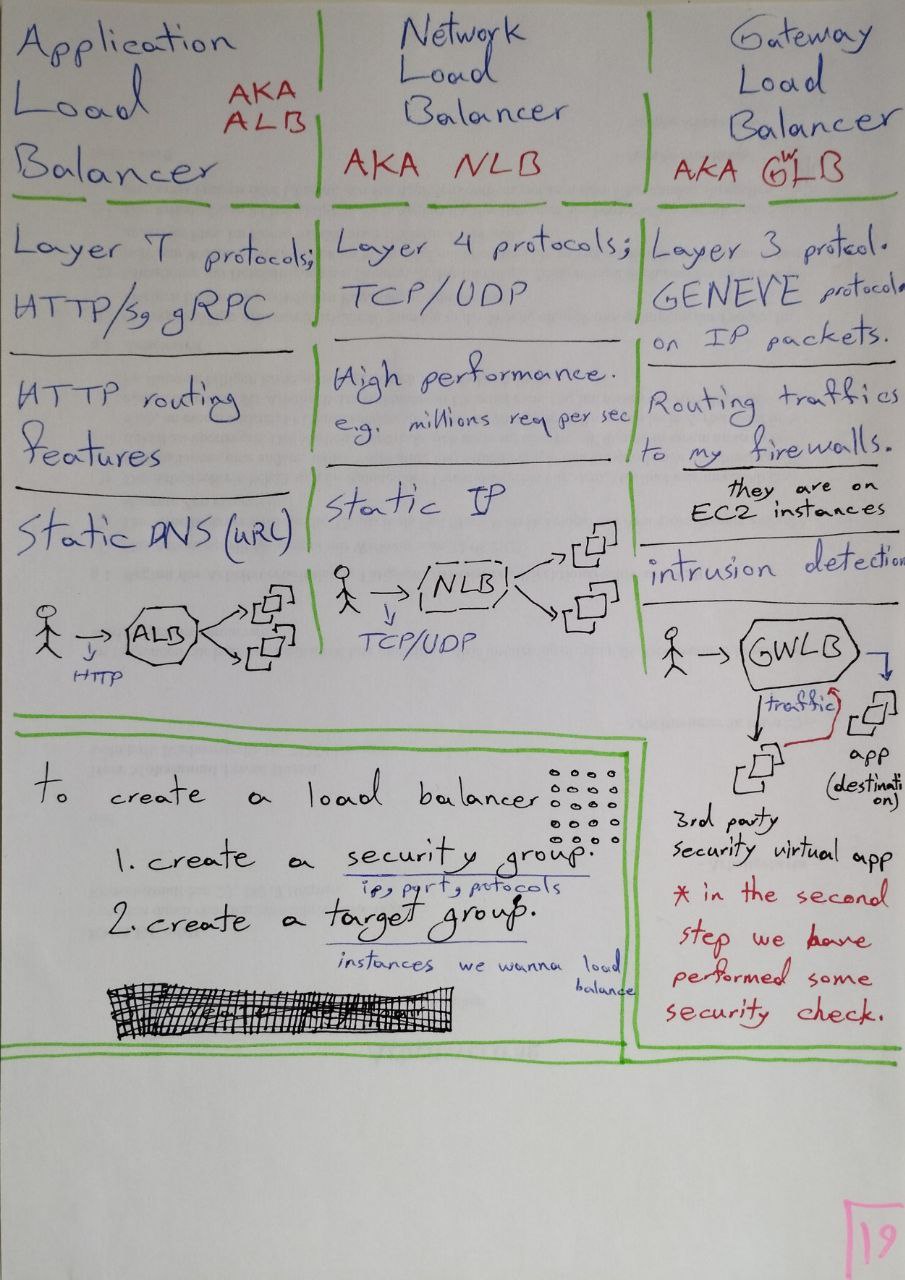 Application
Load
Balancer
AKA
ALB
Network
Load
Balancer
AKA NLB
Gateway
Load
Balancer
AKA GWLB
Layer 7 protocols;
HTTP/s, gRPC
HTTP routing
features
Static DNS (URL)
ALB
HTTP
Layer 4 protocols;
TCP/UDP
High performance.
e.g. millions req per sec
Static IP
NLB
TCP/UDP
Layer 3 protcol.
GENEVE protocol
on IP packets.
Routing traffics
to my firewalls.
they are on
EC2 instances
intrusion detection
GWLB
traffic
app
(destinati
on)
3rd party
security virtual app
* in the second
step we have
performed some
security check.
to create a load balancer
1. create a security group.
ip, port, protocols
2. create a target group.
instances we wanna load
balance
19